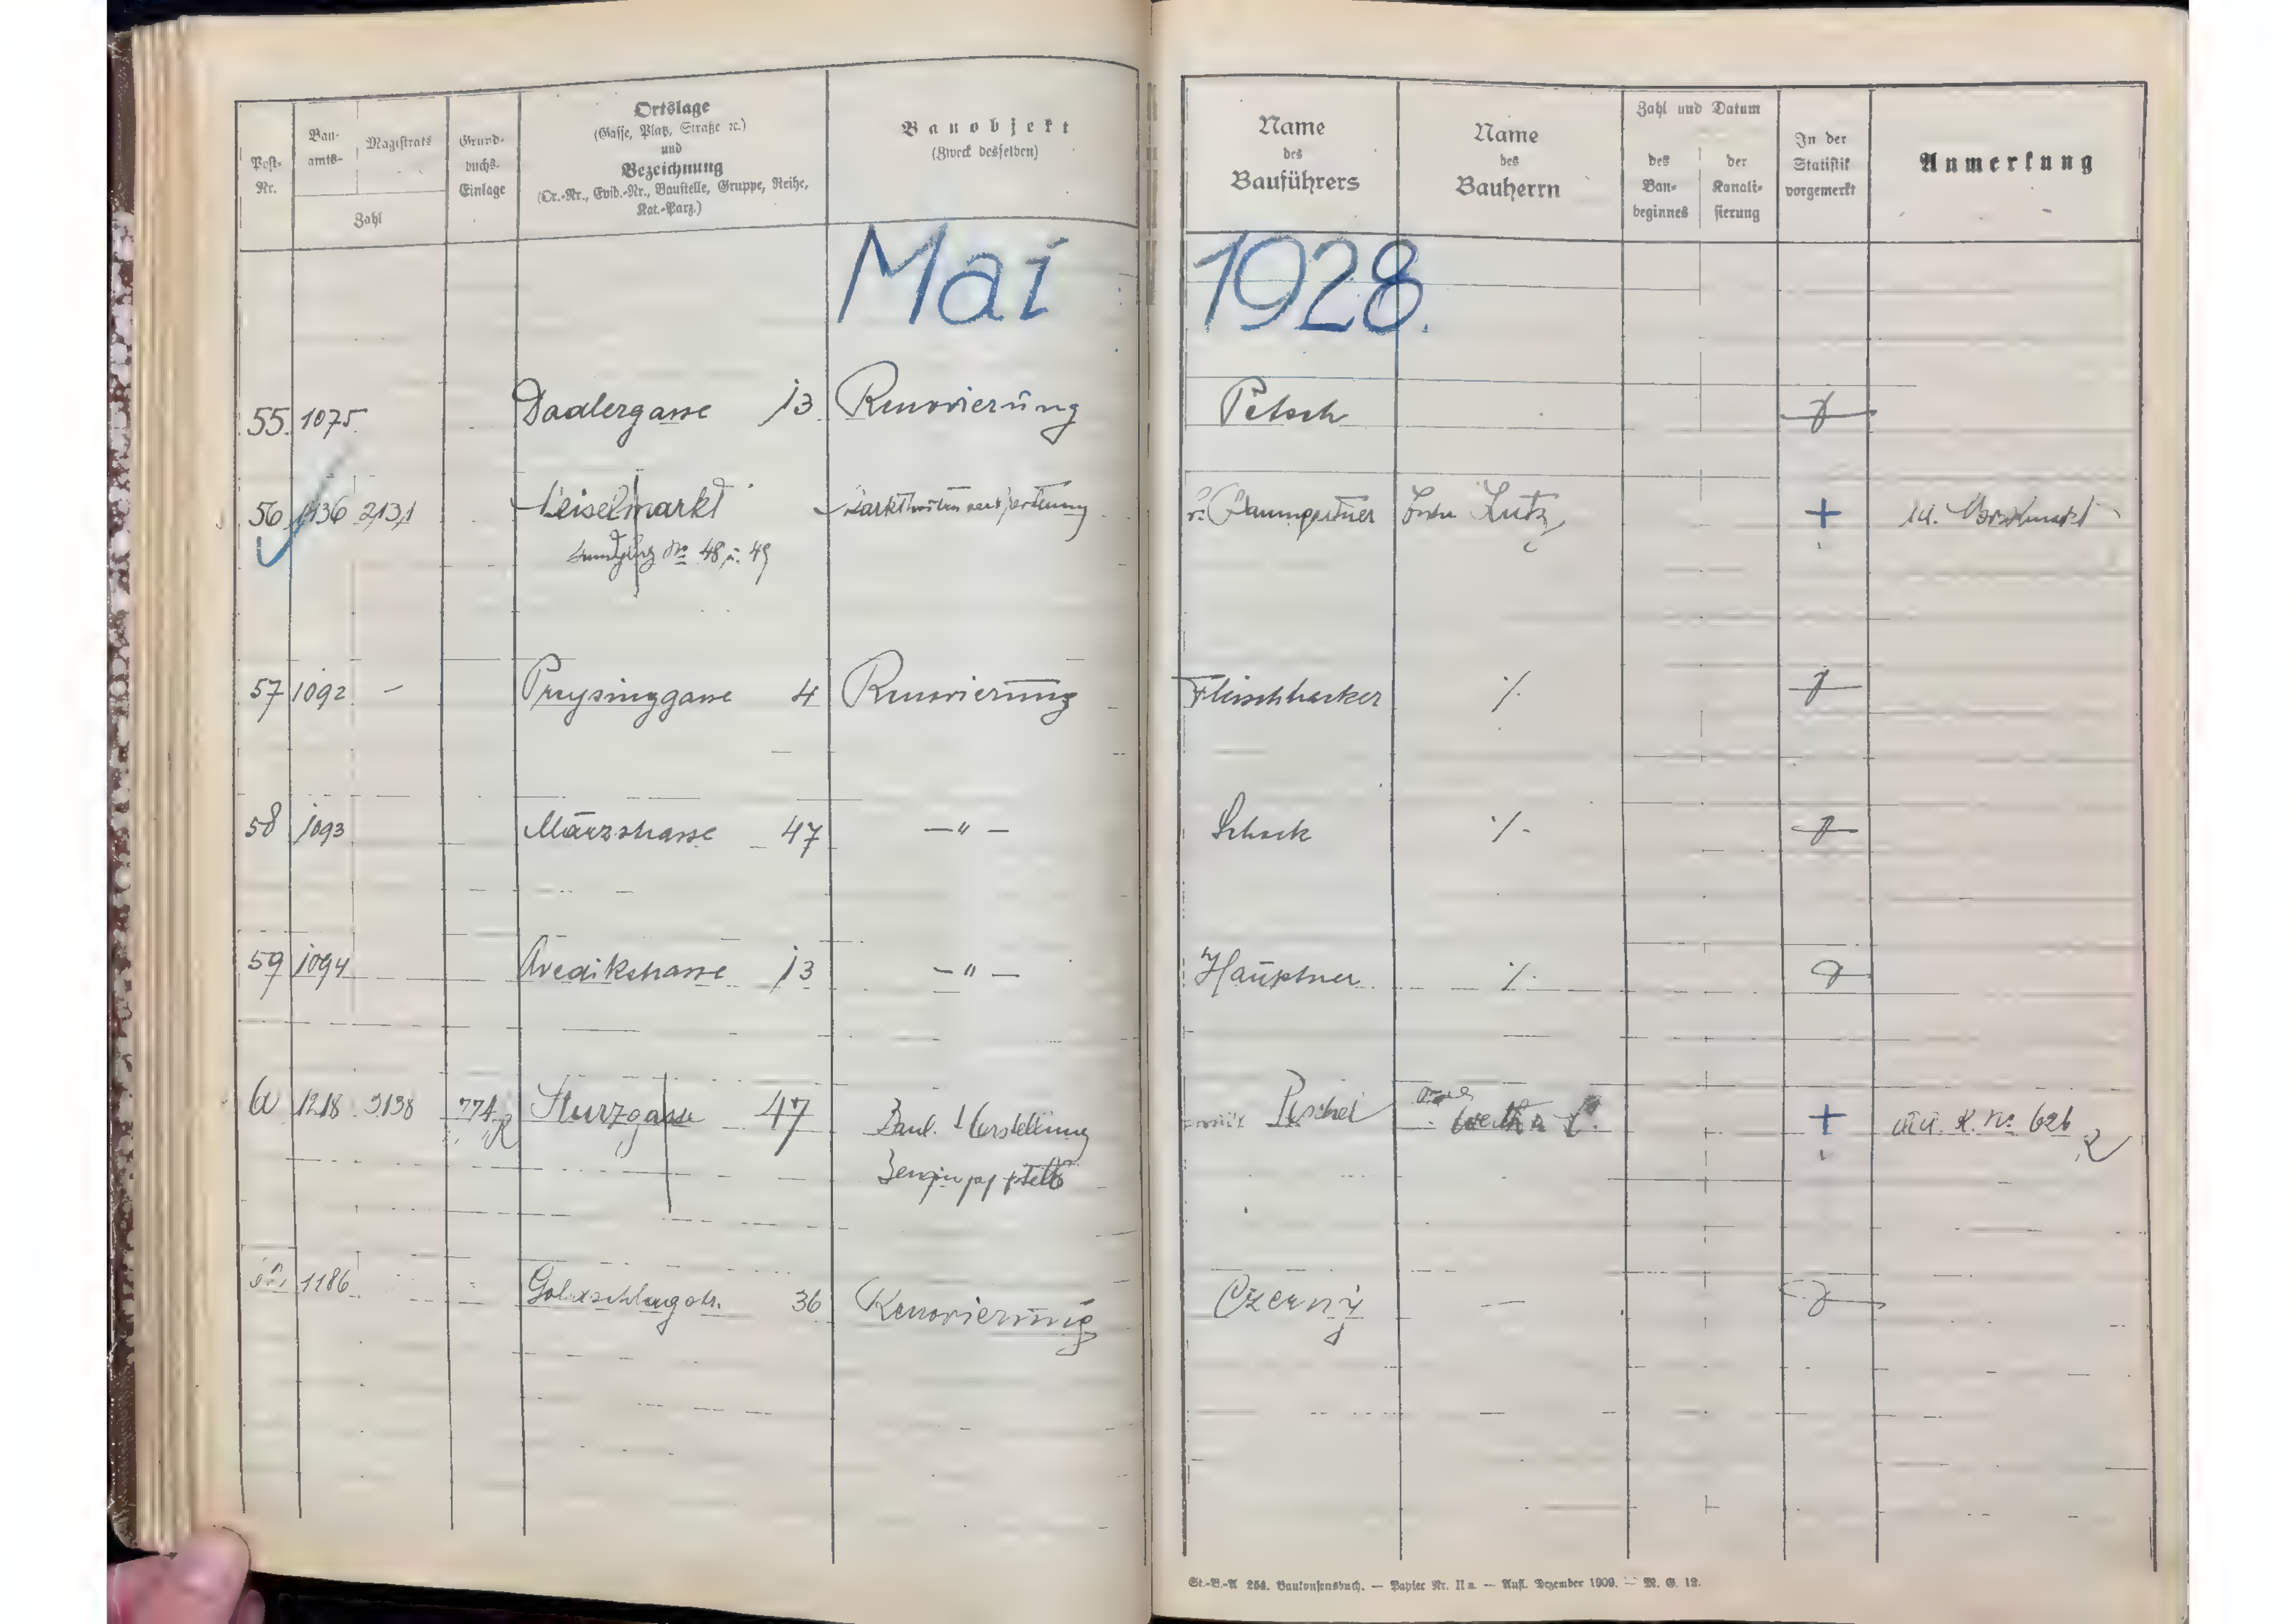 Post-
Nr.
Bau-
amts-
Magistrats
Zahl
Grund-
buchs-
Einlage
Ortslage
(Gasse, Platz, Straße ꝛc.)
und
Bezeichnung
(Or.-Nr., Evid.-Nr., Baustelle, Gruppe, Reihe,
Kat.-Parz.)
Bauobjekt
(Zweck desselben)
Name
des
Bauführers
Name
des
Bauherrn
Zahl und Datum
des
Bau-
beginnes
der
Kanali-
sierung
In der
Statistik
vorgemerkt
Anmerkung
Mai 1928.
55. 1075. Dadlergasse 13 Renovierung Petsch
56 1136 2131 Meiselmarkt Baumgartner Lutz
No 48 u. 49
57 1092 — Preysinggasse 4 Renovierung Fleischhacker ./.
58 1093 Märzstrasse 47 —"— Schack ./.
59 1094 Avedikstrasse 13 —"— Hauptner ./.
60 1218 3138 774 Sturzgasse 47 Baul. Herstellung + K. No 626
1186 Goldschlagstr. 36 Renovierung Czerny —
St.-B.-A 254. Baukonsensbuch. — Papier Nr. IIa. — Aufl. Dezember 1909. — M. G. 12.